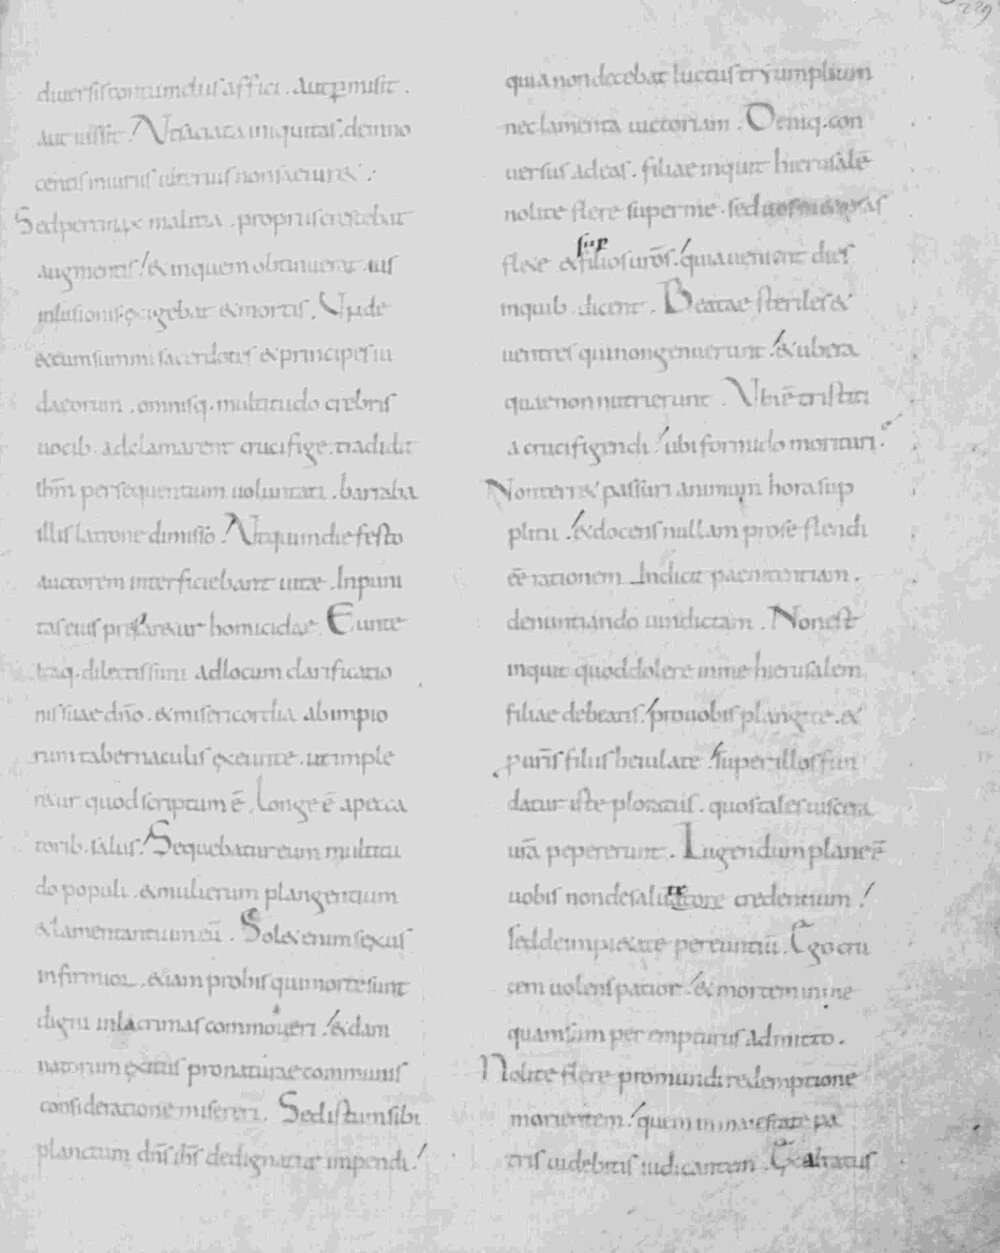 229
diuersis contumeliis affici . aut permisit .
aut iussit . Ut saciata iniquitas . de inno
centis iniuriis ulterius non saeuir&
Sed pertinax malitia . propriis crescebat
augmentis ! & inquem obtinuerat ius
inlusionis . exigebat & mortis . Unde
& cum summi sacerdotes & principes iu
daeorum . omnisq. multitudo crebris
uocib. adclamarent crucifige . tradidit
ihm persequentium uoluntati . barraba
illis latrone dimisso . Ut qui in die festo
auctorem interficiebant uitae . Inpuni
tas eius praestar&ur homicidae . Eunte
itaq. dilectissimi ad locum clarificatio
nis suae dno . & misericordia ab impio
rum tabernaculis exeunte . ut imple
r&ur quod scriptum ē . Longe ē a pecca
torib. salus ! Sequebatur eum multitu
do populi . & mulierum plangentium
& lamentantium eū . Sol& enim sexus
infirmior . &iam pro his qui morte sunt
digni in lacrimas commoueri ! & dam
natorum exitus pro naturae communis
consideratione misereri . Sed istum sibi
planctum dn̄s ih̄s dedignatur impendi !
quia non decebat luctus tryumphum
nec lamenta uictoriam . Deniq. con
uersus ad eas . filiae inquit hierusalē
nolite flere super me . sed uos
flete & sup filios ur̄os . ! quia uenient dies
inquib. dicent . Beatae steriles &
uentres qui non genuerunt . ! & ubera
quae non nutrierunt . Ubi ē tristiti
a crucifigendi ! ubi formido morituri .
Non terr& passuri animum hora sup
plicii . ! & docens nullam pro se flendi
eē rationem . Indicit paenitentiam .
denuntiando uindictam . Non est
inquit quod dolere in me hierusalem
filiae debeatis . ! pro uobis plangite . &
pur̄is filiis heiulate ! super illos fun
datur iste ploratus . quos tales uiscera
ur̄a pepererunt . Lugendum plane ē
uobis non de saluatore credentium !
sed de impi&ate pereuntiū . Ego cru
cem uolens patior ! & mortem in me
quam sum perempturus admitto .
Nolite flere pro mundi redemptione
morientem ! quem in maiestate pa
tris uidebitis iudicantem . Exaltatus